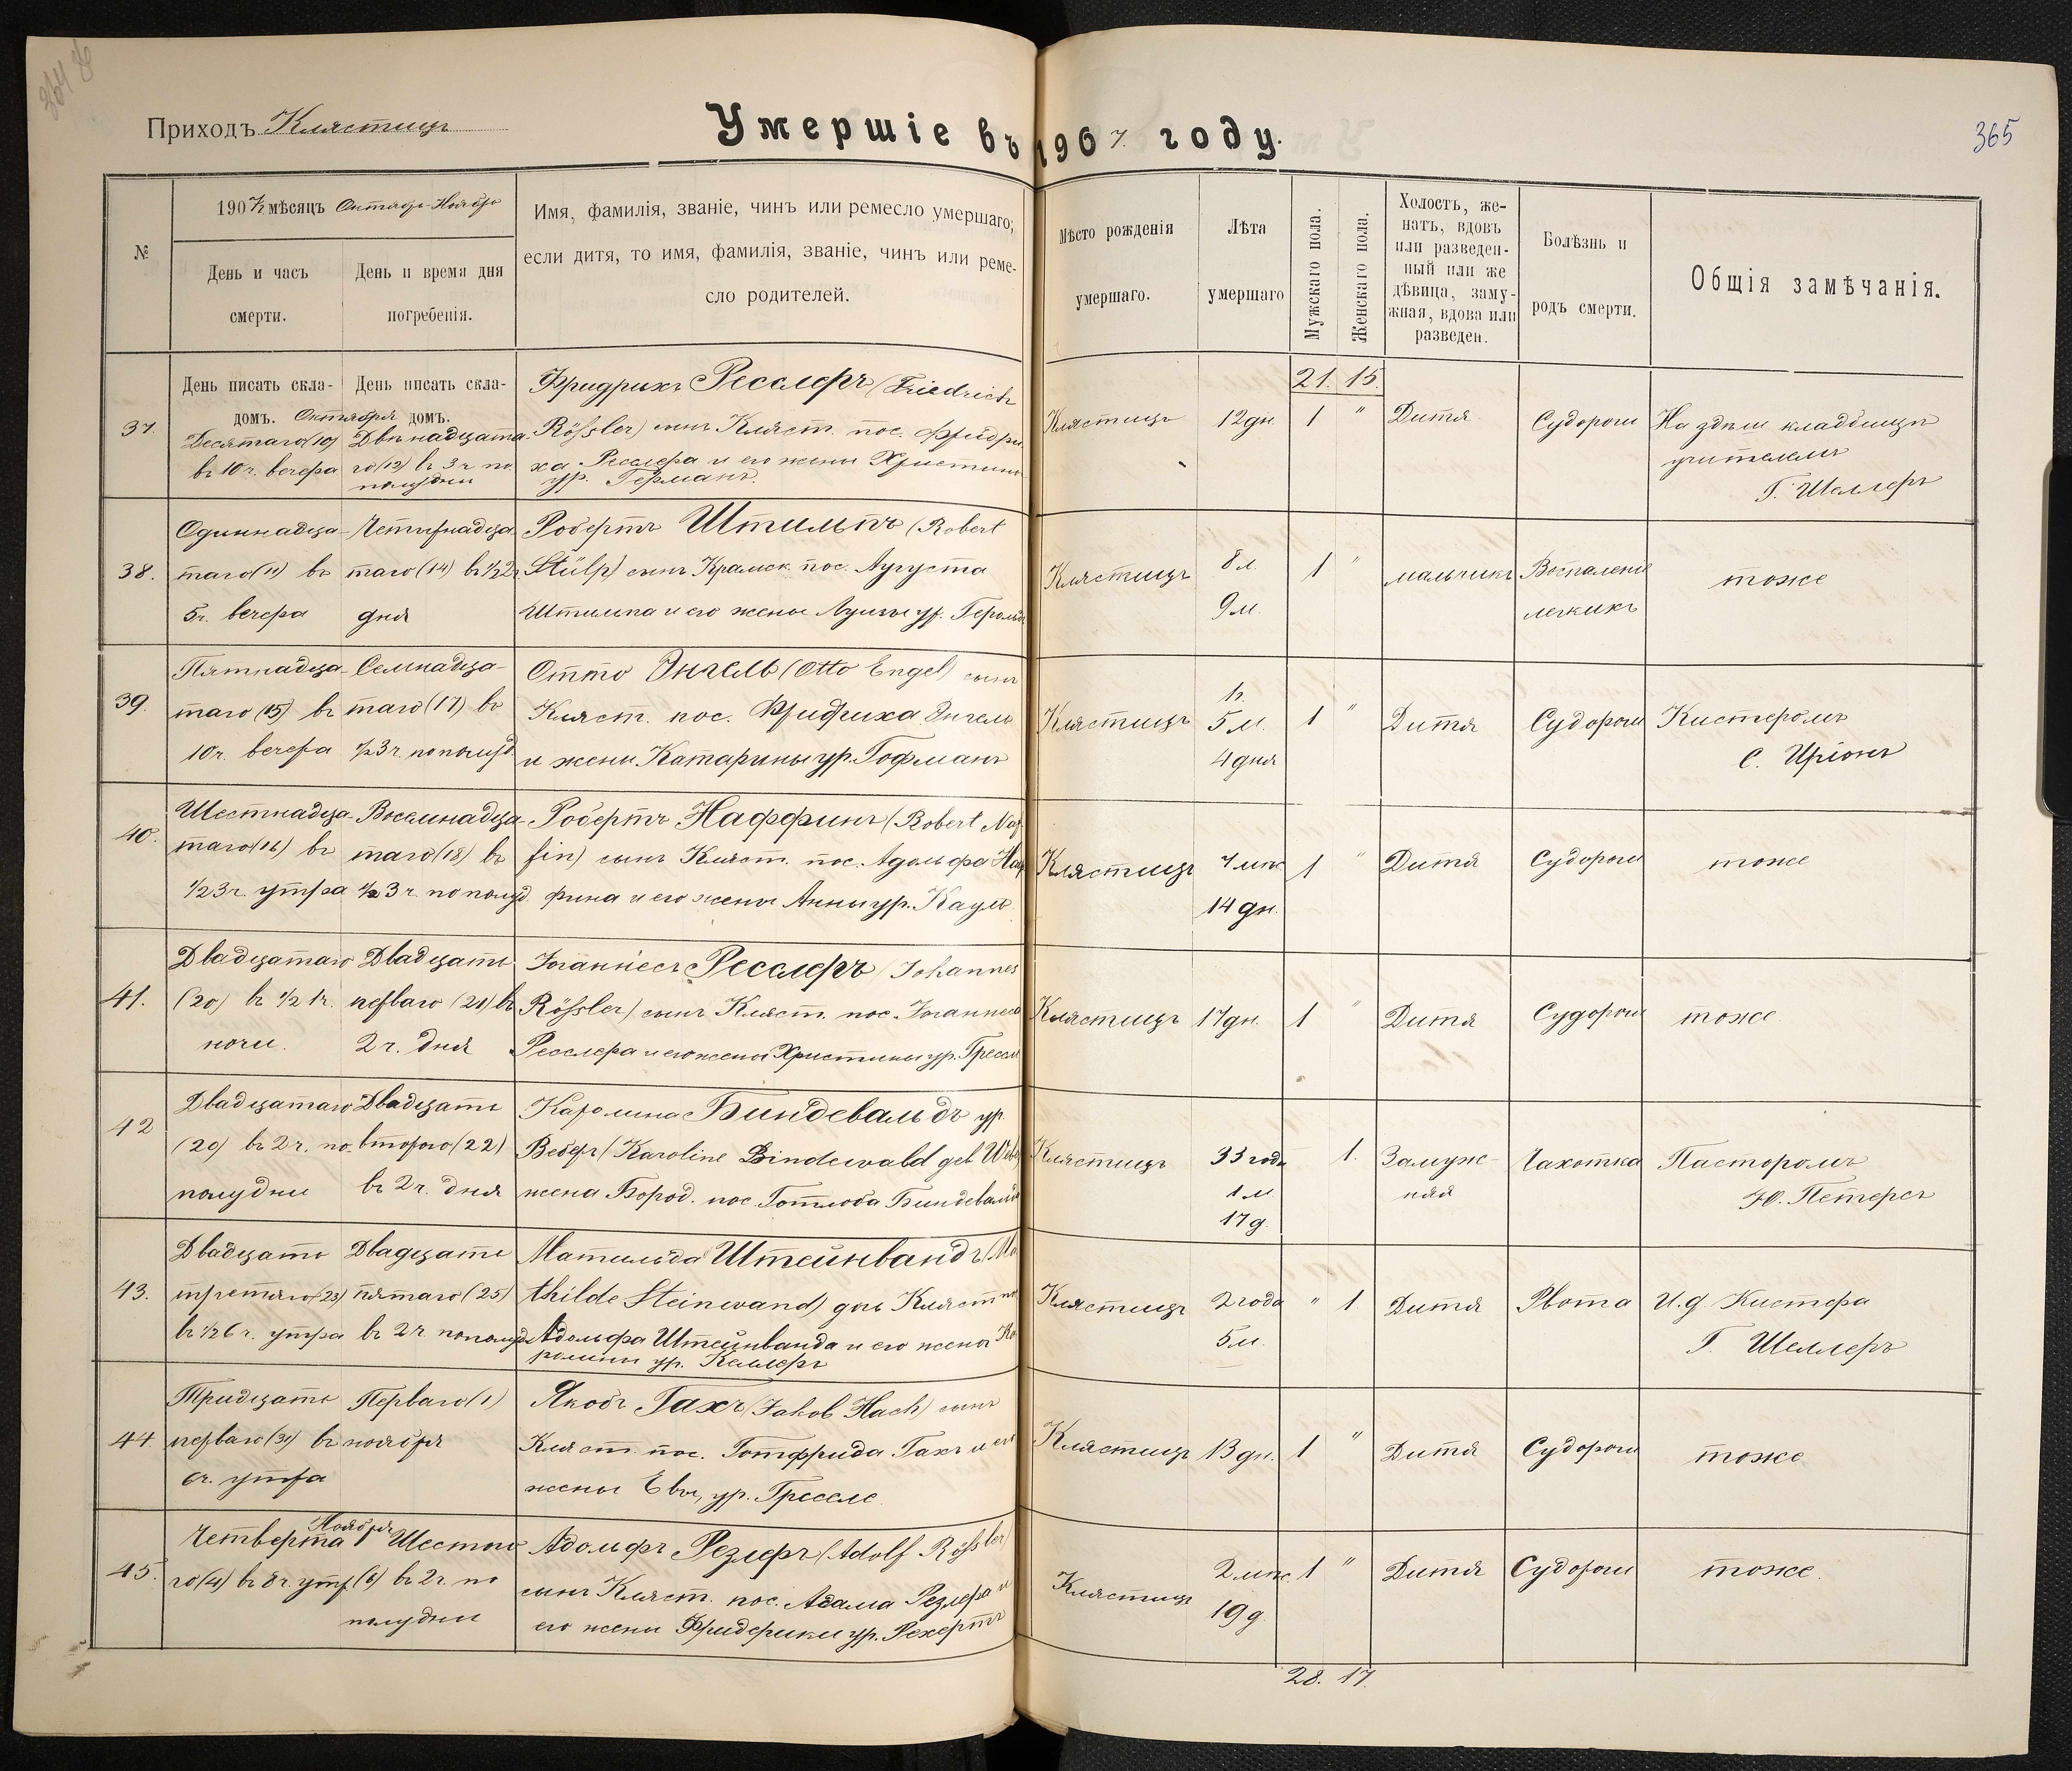 Приходъ Клястицъ
Умершіе въ 1907 году.
365
№
1907 мѣсяцъ Октябрь-Ноябрь
День и часъ
смерти.
День и время дня
погребенія.
Имя, фамилія, званіе, чинъ или ремесло умершаго;
если дитя, то имя, фамилія, званіе, чинъ или реме-
сло родителей.
Мѣсто рожденія
умершаго.
Лѣта
умершаго
Мужскаго пола.
Женскаго пола.
Холостъ, же-
натъ, вдовъ
или разведен-
ный или же
дѣвица, заму-
жная, вдова или
разведен.
Болѣзнь и
родъ смерти.
Общія замѣчанія.
21. 15.
37.
День писать скла-
домъ. Октября
Десятаго (10)
въ 10 ч. вечера
День писать скла-
домъ.
Двѣнадцата-
го (12) въ 3 ч. по
полудни
Фридрихъ Ресслеръ (Friedrich
Rößler) сынъ Кляст. пос. Фридри-
ха Ресслера и его жены Христины
ур. Германъ.
Клястицъ
12 дн.
1 "
Дитя
Судороги
На здѣш кладбищѣ
учителемъ
Г. Шеллеръ
38.
Одиннадца-
таго (11) въ
5 ч. вечера
Четырнадца-
таго (14) въ ½2 ч
дня
Робертъ Штильпъ (Robert
Stülp) сынъ Красм. пос. Августа
Штильпа и его жены Луизы ур. Герольдъ
Клястицъ
8 л.
9 м.
1 "
мальчикъ
Воспаленіе
легкихъ
тоже
39.
Пятнадца-
таго (15) въ
10 ч. вечера
Семнадца-
таго (17) въ
½3 ч. по полуд
Отто Энгель (Otto Engel) сынъ
Кляст. пос. Фридриха Энгель
и жены Катарины ур. Гофманъ
Клястицъ
1 г.
5 м.
4 дня
1 "
Дитя
Судороги
Кистеромъ
С. Иріонъ
40.
Шестнадца-
таго (16) въ
½3 ч. утра
Восемнадца-
таго (18) въ
½3 ч. по полуд.
Робертъ Наффинъ (Robert Naf-
fin) сынъ Кляст. пос. Адольфа Наф
фина и его жены Анны ур. Кауль
Клястицъ
7 мѣс
14 дн.
1 "
Дитя
Судороги
тоже
41.
Двадцатаго
(20) въ ½ 1 ч.
ночи.
Двадцать
перваго (21) въ
2 ч. дня
Іоганнесъ Ресслеръ (Johannes
Rößler) сынъ Кляст. пос. Іоганнеса
Ресслера и его жены Христины ур. Грессле
Клястицъ
17 дн.
1 "
Дитя
Судороги
тоже.
42
Двадцатаго
(20) въ 2 ч. по
полудни
Двадцать
второго (22)
въ 2 ч. дня
Каролина Биндевальдъ ур.
Веберъ (Karoline Bindewald geb Weber
жена Бород. пос. Готлоба Биндевальд
Клястицъ
33 года
1 м.
17 д.
1.
Замуж-
няя
Чахотка
Пасторомъ
Ю. Петерсъ
43.
Двадцать
третьяго (23)
въ ½6 ч. утра
Двадцать
пятаго (25)
въ 2 ч. пополуд
Матильда Штейнвандъ (Ma
thilde Steinwand) дочь Кляст пос
Адольфа Штейнванда и его жены Ка
ролины ур. Келлеръ
Клястицъ
2 года
5 м.
" 1.
Дитя
Рвота
И.д Кистера
Г. Шеллеръ
44
Тридцать
перваго (31) въ
6 ч. утра
Перваго (1)
ноября
Якобъ Гахъ (Jakob Hach) сынъ
Кляст. пос. Готфрида Гахъ и его
жены Евы, ур. Грессле.
Клястицъ
13 дн.
1 "
Дитя
Судороги
тоже
45.
Ноября
Четверта-
го (4) въ 8 ч. утр.
Шестого
(6) въ 2 ч. по
полудни
Адольфъ Резлеръ (Adolf Rößler)
сынъ Кляст. пос. Адама Резлера и
его жены Фридерики ур. Рехертъ
Клястицъ
2 мѣс.
19 д.
1 "
Дитя
Судороги
тоже.
28. 17.